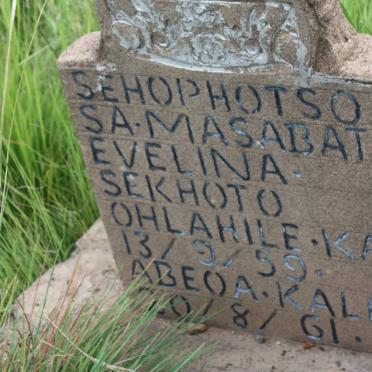 SEHOPHOTSO
SA·MASABAT
EVELINA.
SEKHOTO
OHLAHILE·KA
13/9/59.
ABEOA·KAL
8/61.